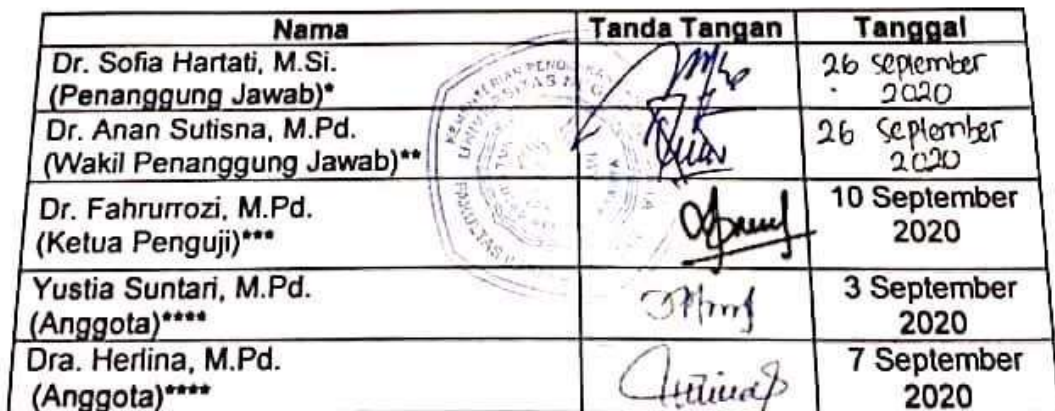 Nama Tanda Tangan Tanggal
Dr. Sofia Hartati, M.Si.
(Penanggung Jawab)*
26 september
2020
Dr. Anan Sutisna, M.Pd.
(Wakil Penanggung Jawab)**
26 September
2020
Dr. Fahrurrozi, M.Pd.
(Ketua Penguji)***
10 September
2020
Yustia Suntari, M.Pd.
(Anggota)****
3 September
2020
Dra. Herlina, M.Pd.
(Anggota)****
7 September
2020